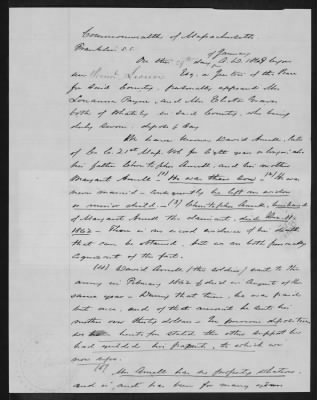 Commonwealth of Massachusetts
Franklin S.S.
On the day of January A.D. 1868 before
me Esq. a Justice of the Peace
for said County, personally appeared Mrs
Louanna Payne, and Mrs Electa Graves
both of Whately in said County, who being
duly sworn, depose & say
We have known David Ansell, late
of Co 21st Mass. Vols for eight years or longer, also
his father Christopher Ansell, and his mother
Margaret Ansell (1) He was their son (2) He
was never married & consequently he left no widow
or minor child (3) Christopher Ansell, husband
of Margaret Ansell the claimant, died
1862 There is no record evidence of his death
that can be obtained, but we are both personally
cognizant of the fact.
David Ansell (the soldier) went to the
army in February 1862 & died in August of the
same year During that time, he was paid
but once, and of that amount he sent his
mother over thirty dollars. In previous depositions
we have stated the other support he
had yielded his parents, to which we
now refer.
Mrs Ansell has no property whatever,
and is, and has been for many years